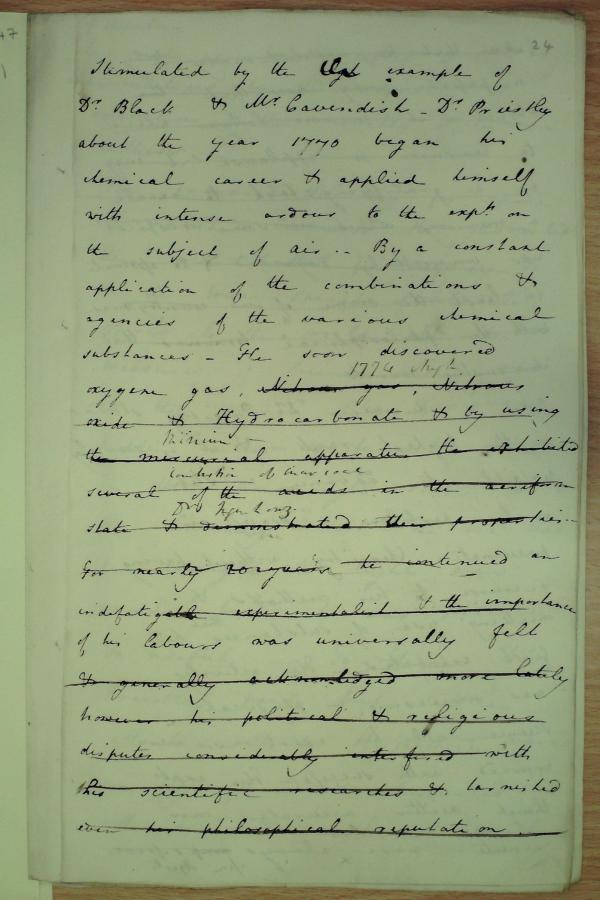 24
Stimulated by the example of
Dr Black & Mr Cavendish - Dr Priestley
about the year 1770 began his
chemical career & applied himself
with intense ardour to the expts on
the subject of air -- By a constant
application of the combinations &
agencies of the various chemical
substances - He soon discovered
1774
oxygene gas, Nitrous gas, Nitrous
oxide & Hydrocarbonate & by using
Minium -
the mercurial apparatus He exhibited
combustion of charcoal
several of the acids in the aeriform
state & demonstrated their properties --
For nearly 20 years he continued an
indefatigable experimentalist & the importance
of his labours was universally felt
& generally acknowledged more lately
however his political & religious
disputes considerably interfered with
his scientific researches & tarnished
even his philosophical reputation.